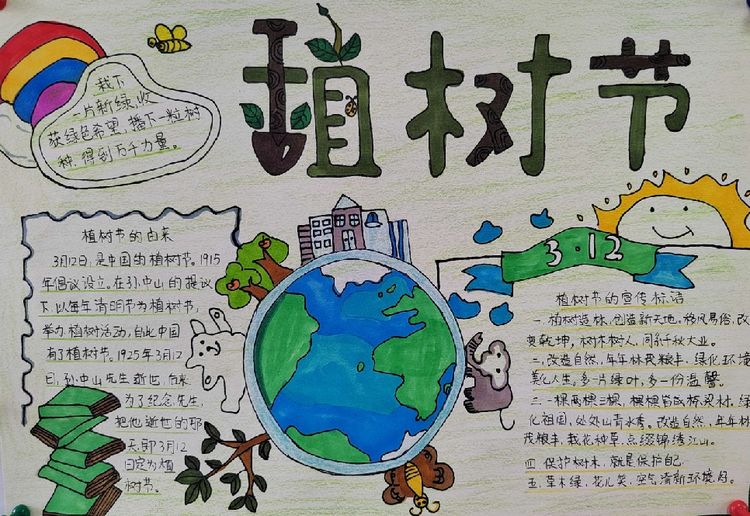 植树节
栽下
一片新绿,收
获绿色希望,播下一粒树
种,得到万千力量。
植树节的由来
3月12日,是中国的植树节。1915
年倡议设立。在孙中山的提议
下,以每年清明节为植树节,
举办植树活动,自此中国
有了植树节。1925年3月12
日,孙中山先生逝世,后来
为了纪念先生,
把他逝世的那
天,即3月12
日定为植
树节。
3·12
植树节的宣传标语
一、植树造林,创造新天地,移风易俗,改
变乾坤,树木树人,同系千秋大业。
二、改造自然,年年林茂粮丰,绿化环境
美化人生。多一片绿叶,多一份温馨。
三、一棵两棵三棵,棵棵皆成栋梁材。绿
化祖国,处处山青水秀。改造自然,年年林
茂粮丰,栽花种草,点缀锦绣江山。
四、保护树木,就是保护自己
五、草木绿,花儿笑,空气清新环境好。